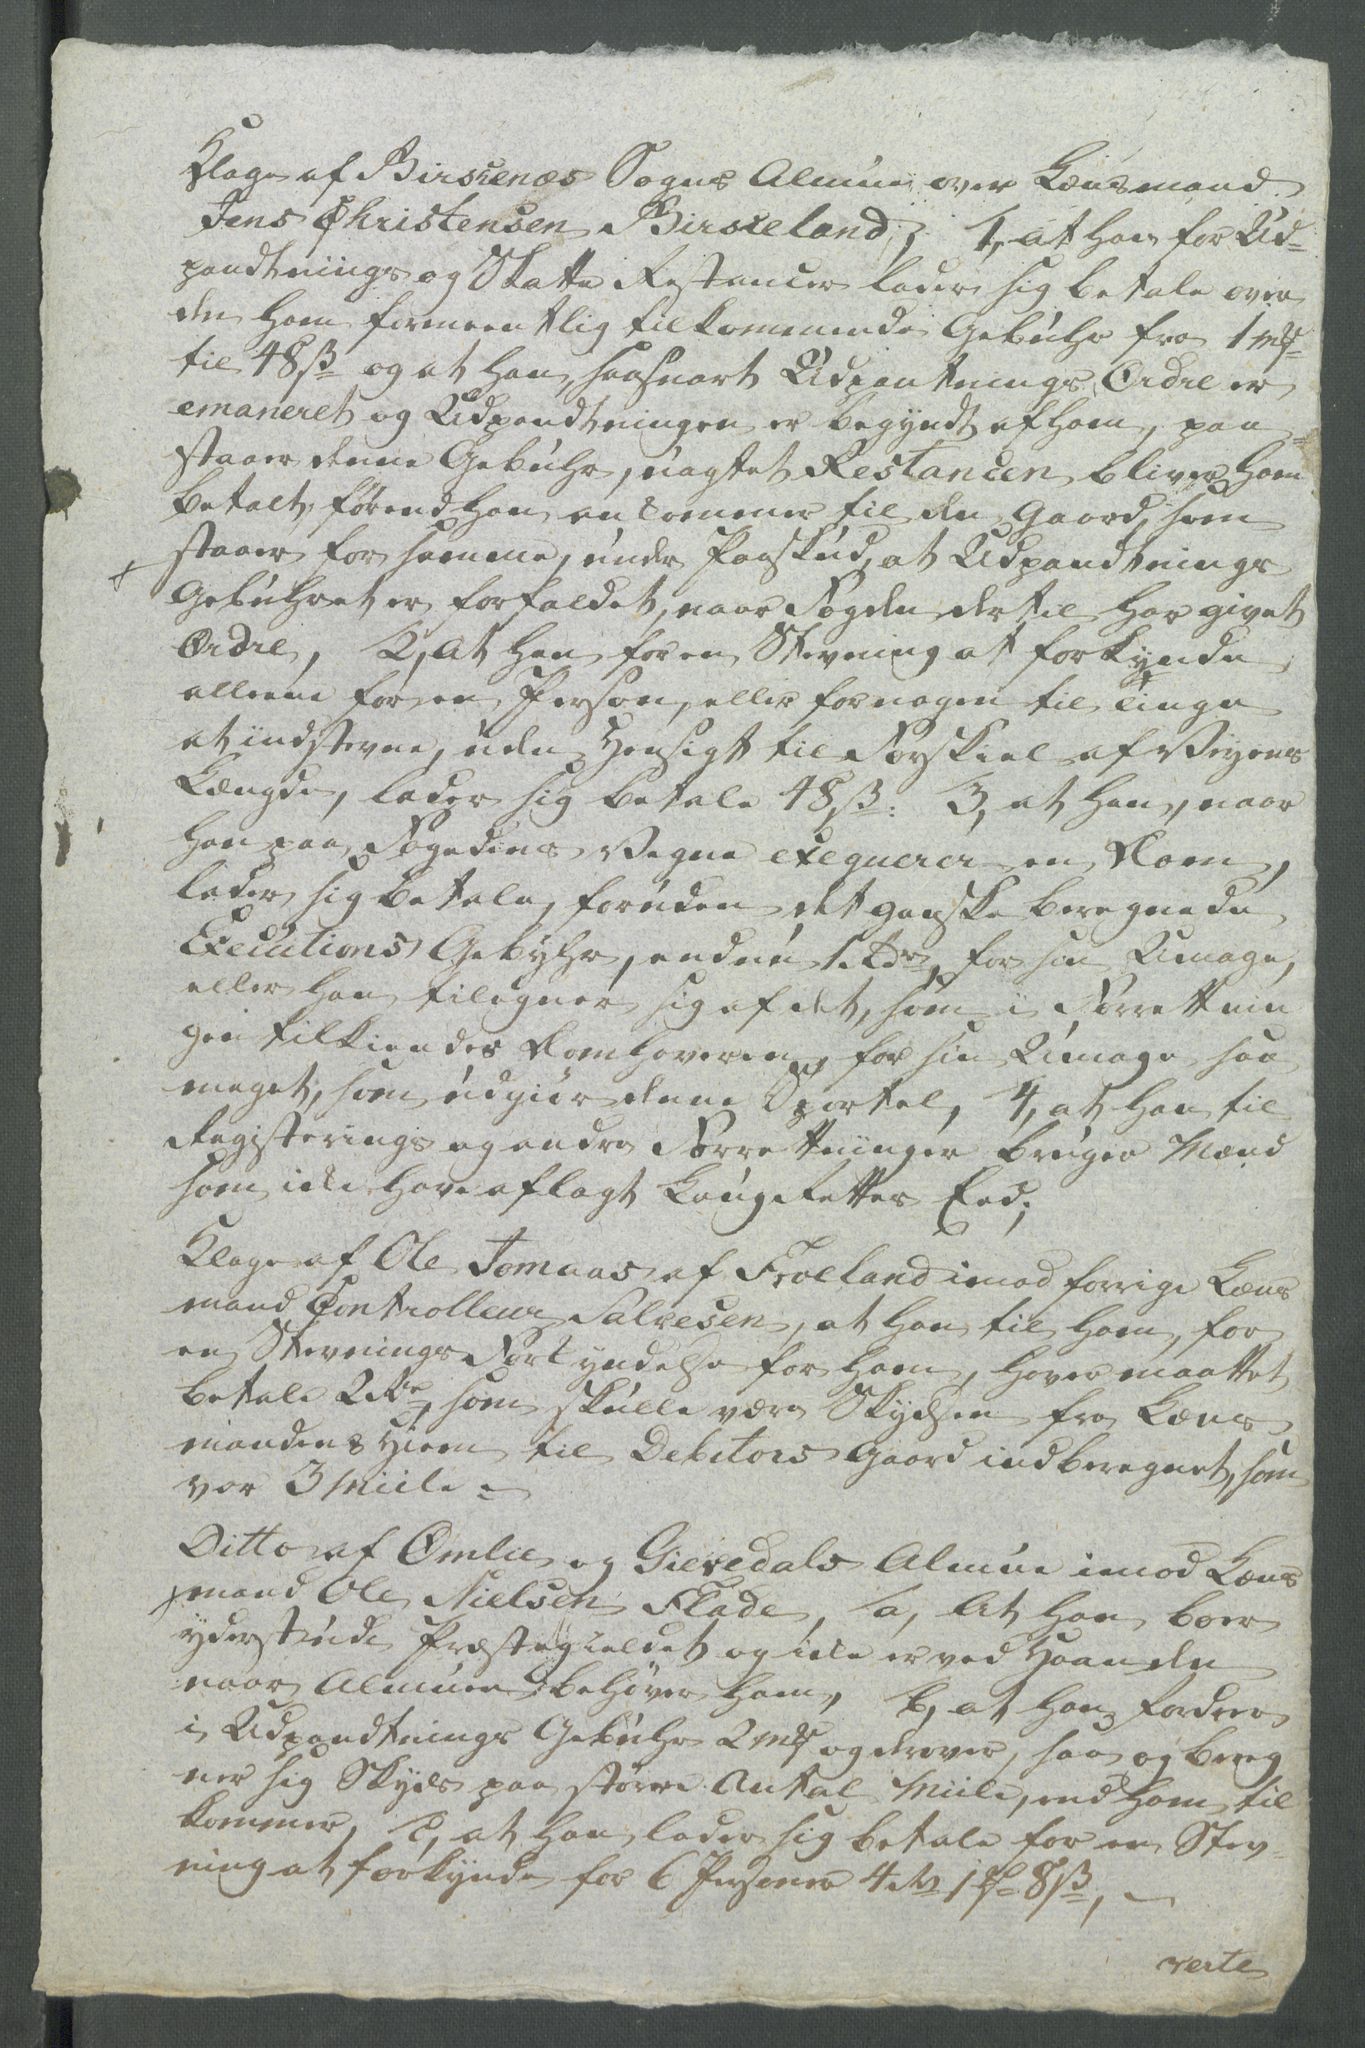 Klage af Birkenæs Sogns Almue over Lænsmand
Jens Christensen Birkeland, 1, at han for Ud-
pandtnings og Skatte Restancer lader sig betale over
den ham formeentlig tilkommende Gebuhr fra 1 mk
til 48 ß og at han, saasnart Udpantnings Ordre er
emaneret og Udpandtningen er begyndt af ham, paa-
staaer denne Gebuhr, uagtet Restancen bliver ham
betalt, førend han ankommer til den Gaard, som
staaer for samme, under Paaskud, at Udpandtnings
Gebuhret er forfaldet, naar Fogden dertil har givet
Ordre, 2, at han for en Stevning at forkynde
alleene for en Person, eller for nogen til Tinge
at indstevne, uden Hensigt til Forskiel af Veyens
Længde, lader sig betale 48 ß. 3, at han, naar
han paa Fogedens Vegne exeqverer en Dom,
lader sig betale, foruden det ganske beregnede
Executions Gebyhr, endnu 1 Rdr for sin Umage,
eller han tilegner sig af det, som i Forrettnin
gen tilkiendes Domhaveren, for sin Umage saa
meget, som udgiør denne Sportel, 4, at han til
Registerings og andre Forrettninger bruger Mænd
som icke have aflagt Laugrettes Eed;
Klage af Ole Tomaas af Frolland imod forrige Læns
mand Controlleur Salvesen, at han til ham, for
en Stevnings Forkyndelse for ham, haver maattet
betale 2 Rdr, som skulle være Skydsen fra Læns
mandens Hiem til Debitors Gaard indberegnet, som
var 3 Miile
Ditto af Omlie og Gievedals Almue imod Læns
mand Ole Nielsen Flade, a, At han boer
yderst ude Præstegieldet og icke er ved Haanden
naar Almuen behøver ham, b, at han fordrer
i Udpandtnings Gebuhr 2 mk og derover, saa og bereg
ner sig Skyds paa større Antal Miile, end ham til
kommer, c, at han lader sig betale for en Stev-
ning at forkynde for 6 Personer 4 Rdr 1 8 ß,
verte